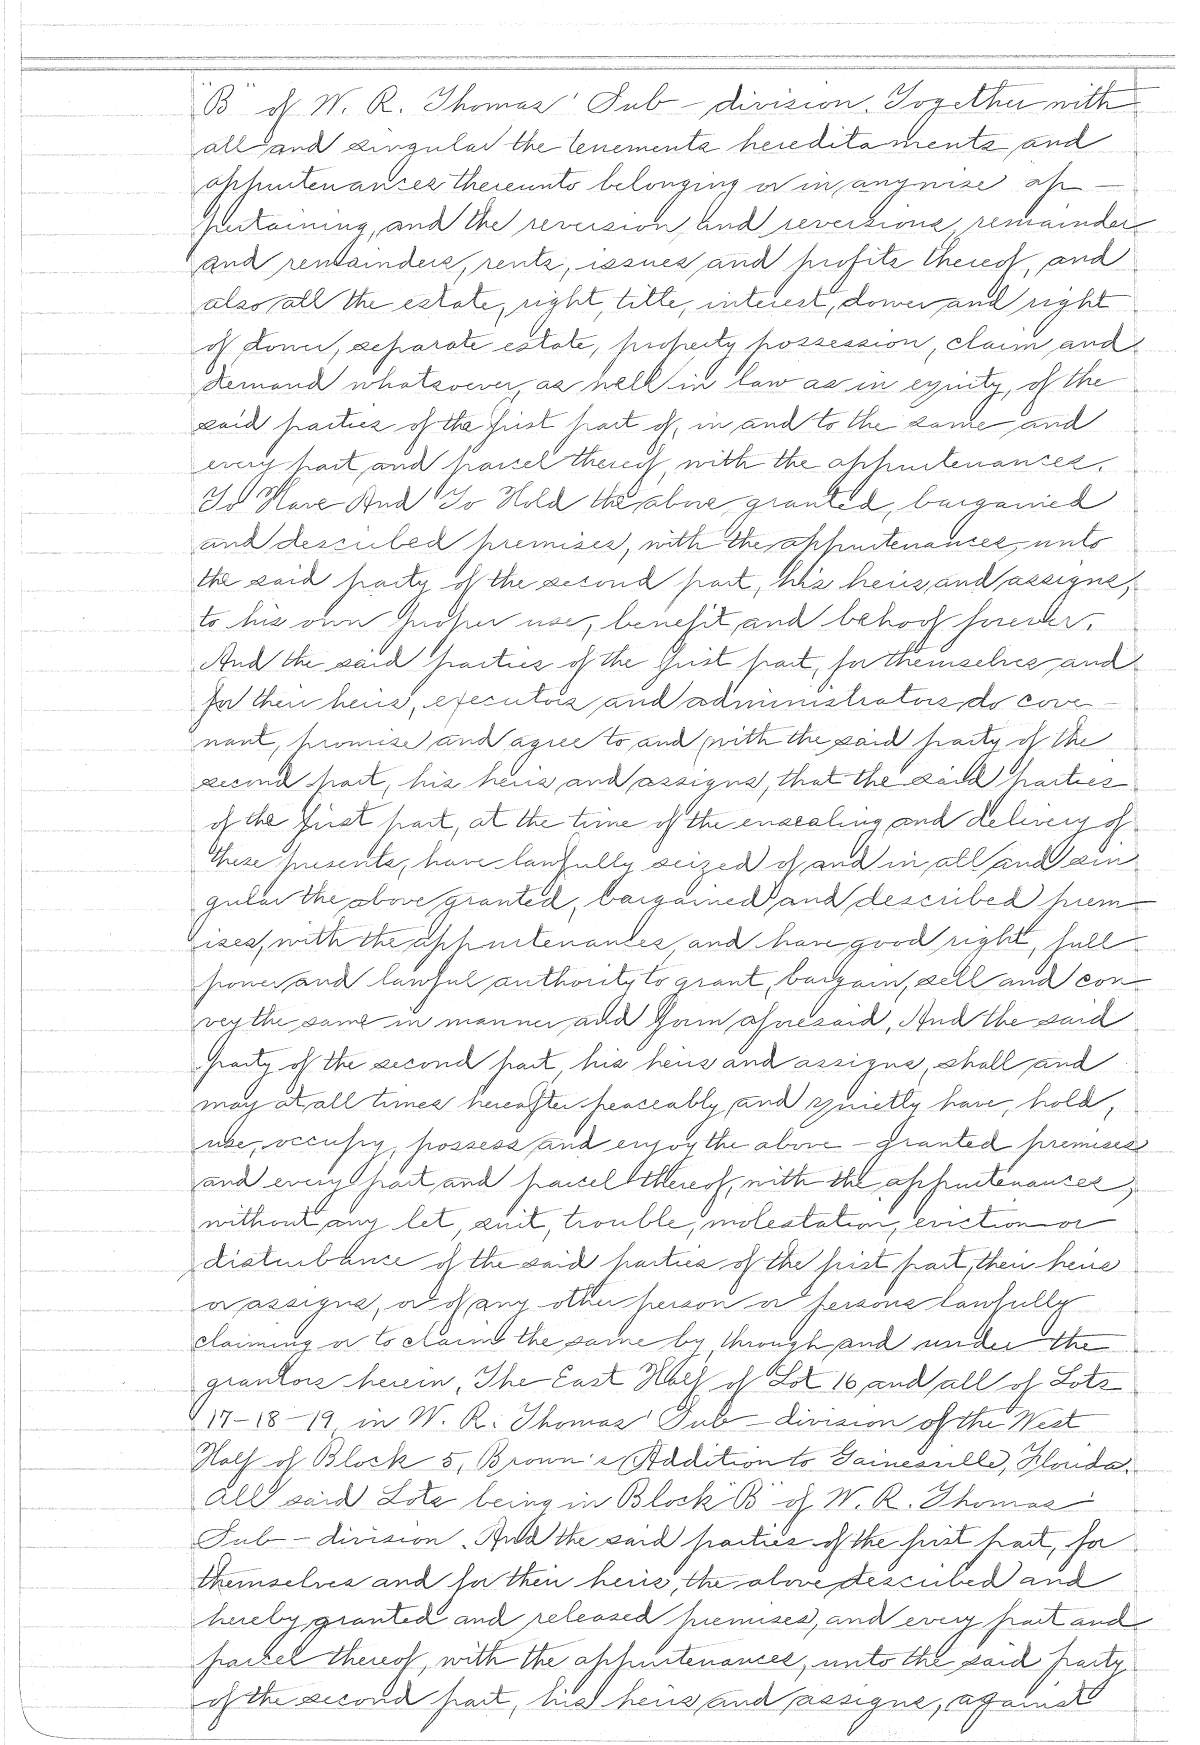 "B" of W. R. Thomas' Sub-division. Together with
all and singular the tenements hereditaments and
appurtenances thereunto belonging or in anywise ap-
pertaining, and the reversion and reversions, remainder
and remainders, rents, issues and profits thereof, and
also all the estate, right, title, interest, dower and right
of dower, separate estate, property possession, claim and
demand whatsoever, as well in law as in equity, of the
said parties of the first part of, in and to the same and
every part and parcel thereof, with the appurtenances.
To Have And To Hold the above granted, bargained
and described premises, with the appurtenances, unto
the said party of the second part, his heirs and assigns,
to his own proper use, benefit and behoof forever.
And the said parties of the first part, for themselves and
for their heirs, executors and administrators do cove-
nant, promise and agree to and with the said party of the
second part, his heirs and assigns, that the said parties
of the first part, at the time of the ensealing and delivery of
these presents, have lawfully seized of and in all and sin
gular the above granted, bargained and described prem-
ises, with the appurtenances, and have good right, full
power and lawful authority to grant, bargain, sell and con-
vey the same in manner and form aforesaid. And the said
party of the second part, his heirs and assigns, shall and
may at all times hereafter peaceably and quietly have, hold,
use, occupy, possess and enjoy the above-granted premises
and every part and parcel thereof, with the appurtenances,
without any let, suit, trouble, molestation, eviction or
disturbance of the said parties of the first part, their heirs
or assigns, or of any other person or persons lawfully
claiming or to claim the same by, through and under the
grantors herein. The East Half of Lot 16 and all of Lots
17-18-19 in W. R. Thomas' Sub-division of the West
Half of Block 5, Brown's Addition to Gainesville, Florida.
All said Lots being in Block "B" of W. R. Thomas'
Sub-division. And the said parties of the first part, for
themselves and for their heirs, the above described and
hereby granted and released premises, and every part and
parcel thereof, with the appurtenances, unto the said party
of the second part, his heirs and assigns, against